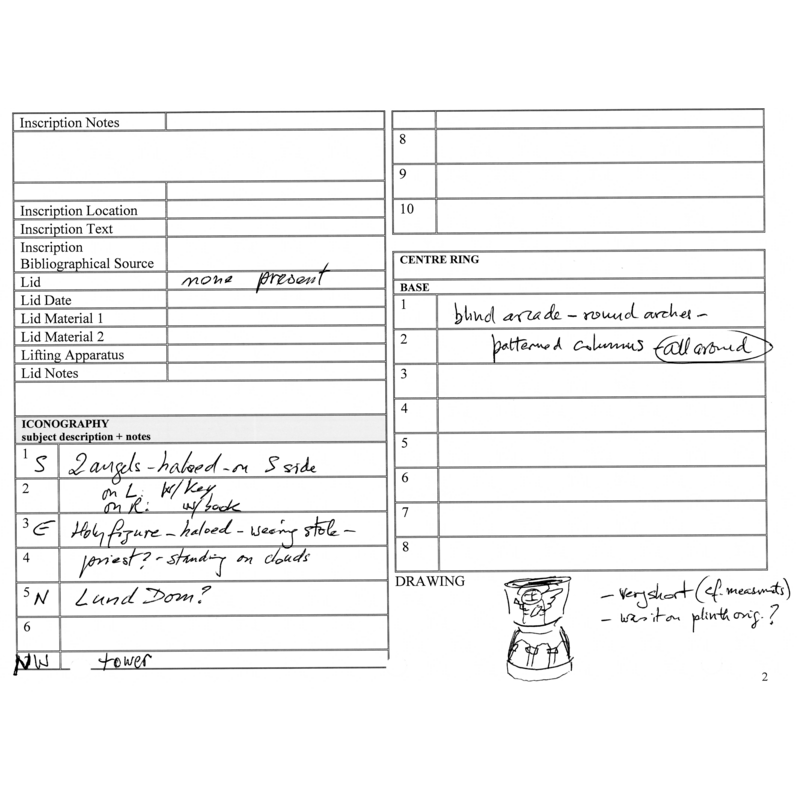 Inscription Notes
Inscription Location
Inscription Text
Inscription
Bibliographical Source
Lid none present
Lid Date
Lid Material 1
Lid Material 2
Lifting Apparatus
Lid Notes
ICONOGRAPHY
subject description + notes
1 S 2 angels - haloed - on S side
2 on L: w/ key
on R: w/ book
3 E Holy figure - haloed - wearing stole -
4 priest? - standing on clouds
5 N Lund Dom?
6
NW tower
8
9
10
CENTRE RING
BASE
1 blind arcade - round arches -
2 patterned columns - all around
3
4
5
6
7
8
DRAWING
- very short (cf. measmnts)
- was it on plinth orig.?
2